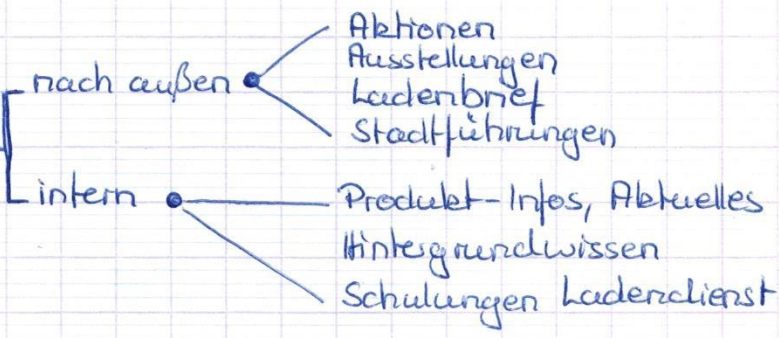 nach außen
Aktionen
Ausstellungen
Ladenbrief
Stadtführungen
intern
Produkt-Infos, Aktuelles
Hintergrundwissen
Schulungen Ladendienst